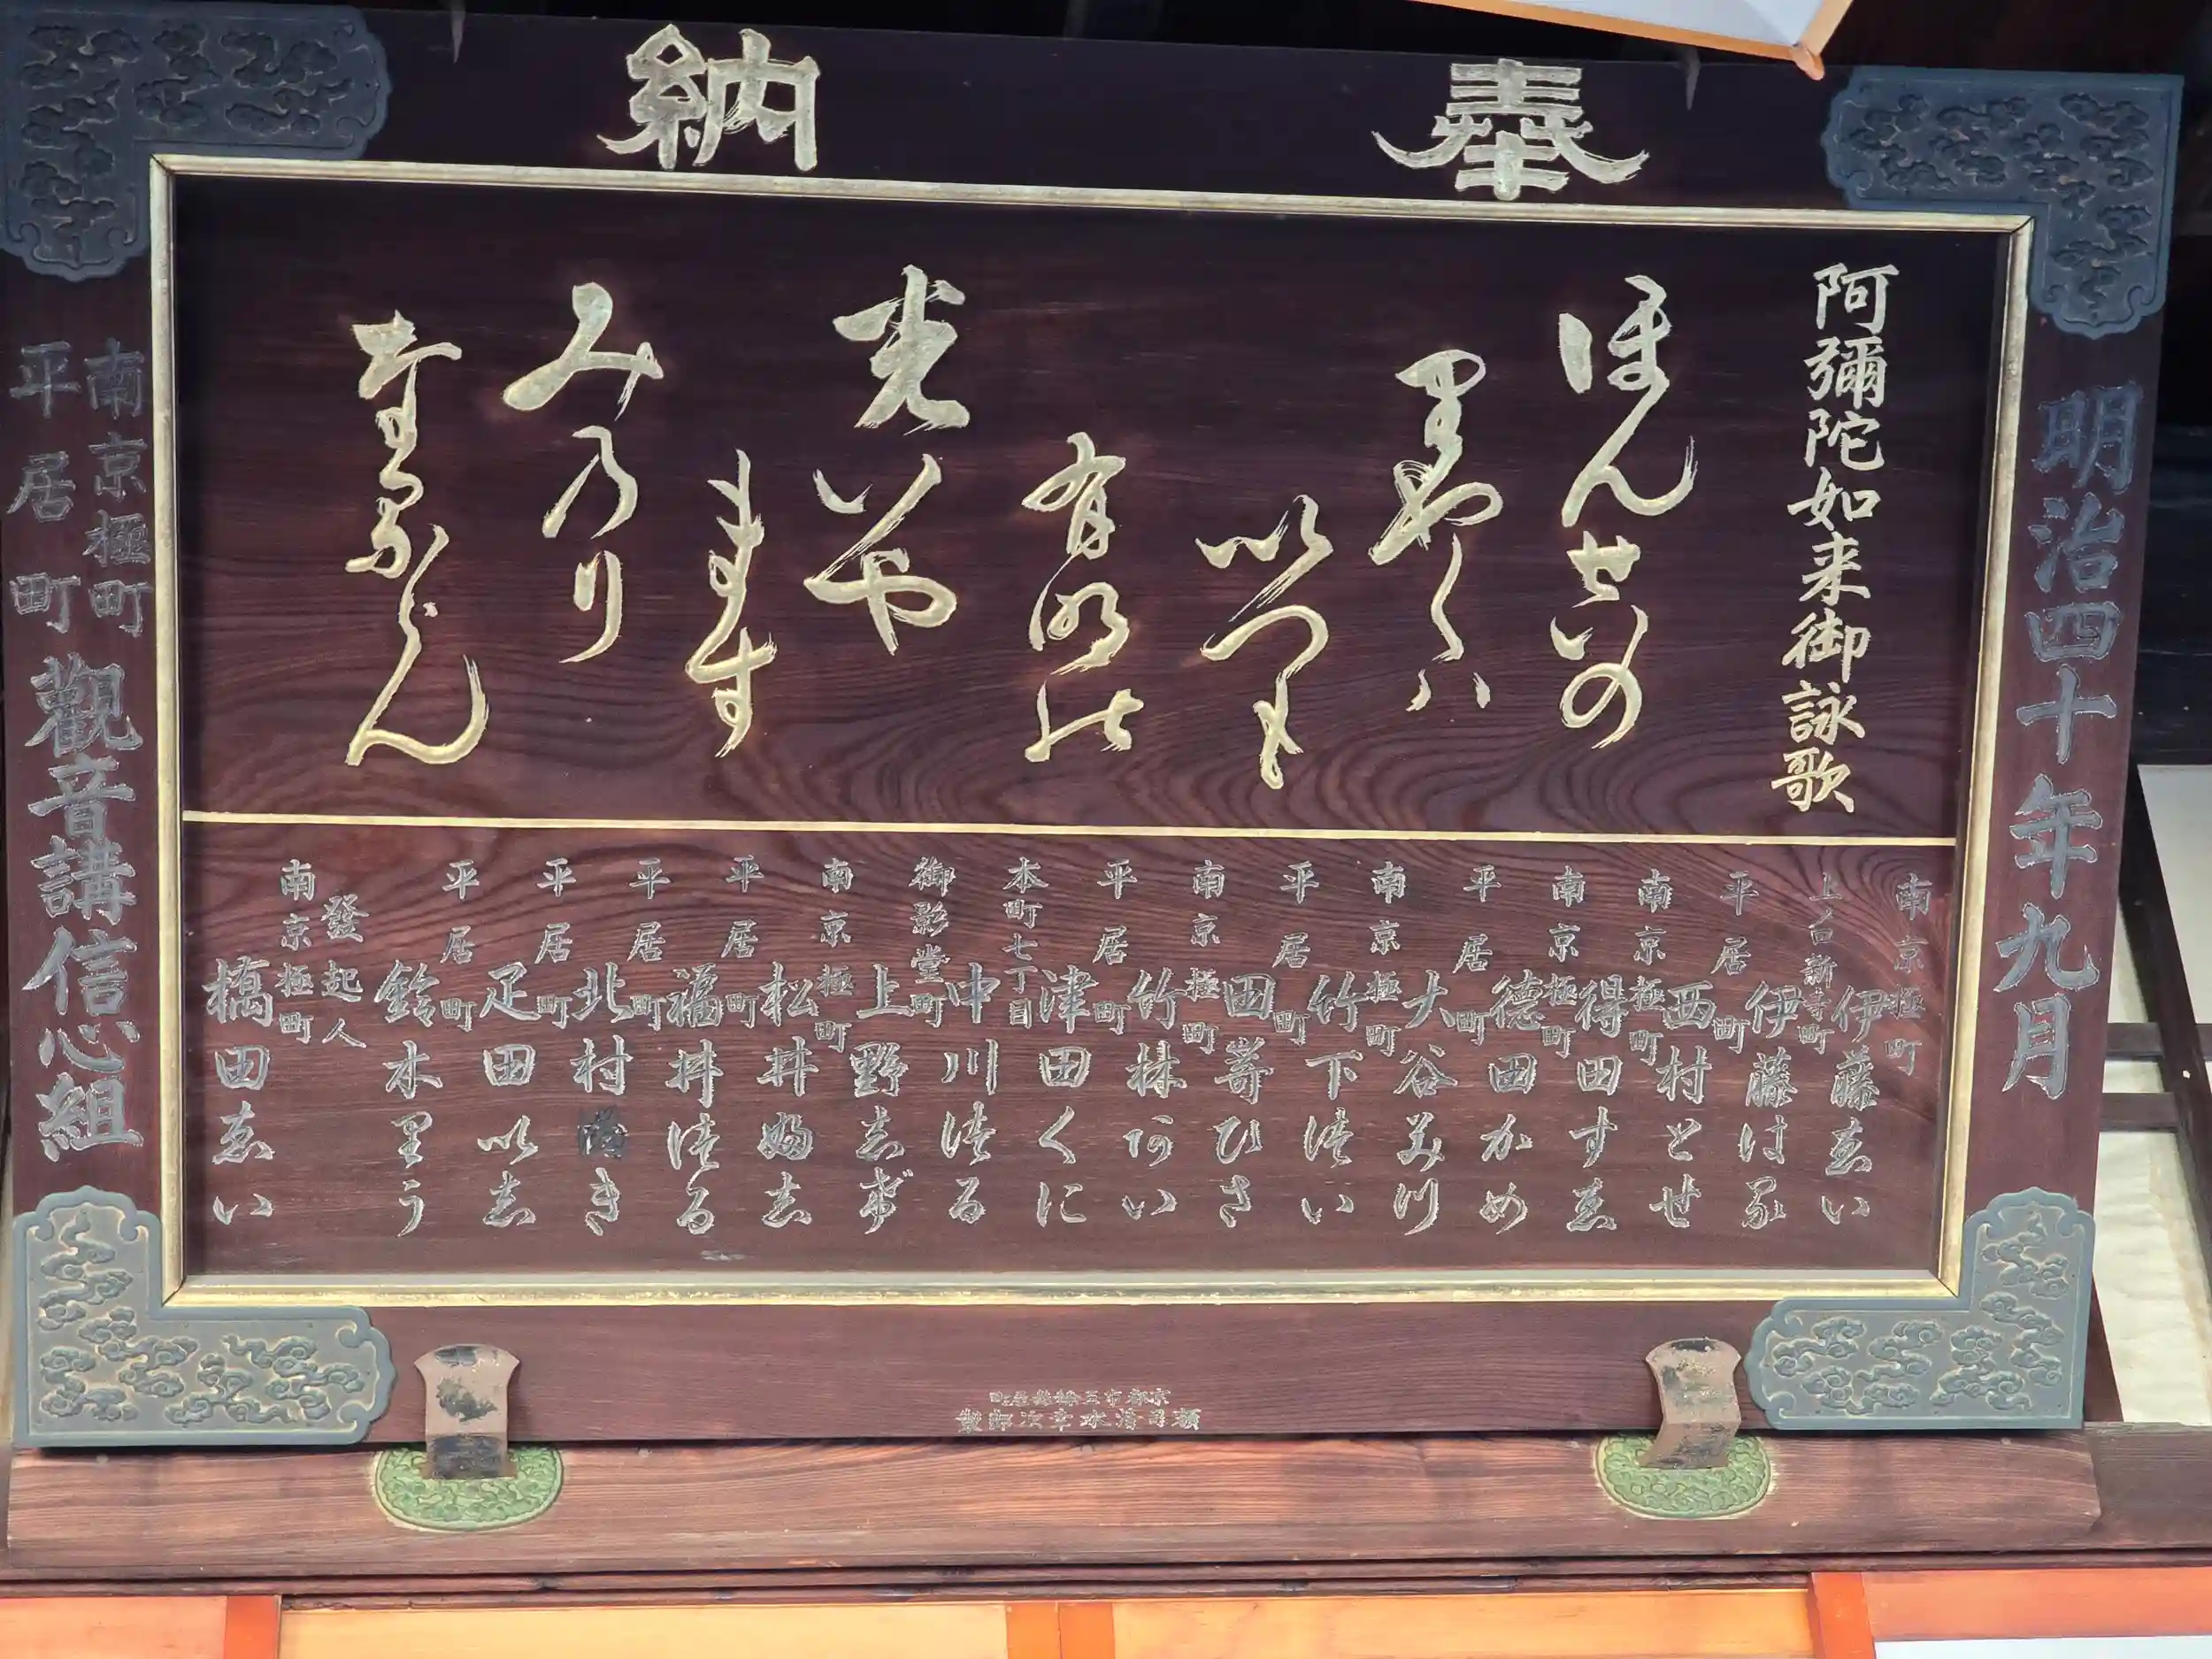 奉納
明治四十年九月
阿彌陀如来御詠歌
ほんせいの
りやくハ
いつも
有明の
光いや
ます
みのり
なるらん
南京極町 伊藤ゑい
上ノ口新寺町 伊藤はる
平居町 西村とせ
南京極町 得田すゑ
南京極町 徳田かめ
平居町 大谷みつ
南京極町 竹下つい
平居町 田嵜ひさ
南京極町 竹林あい
平居町 津田くに
本町七丁目 中川つる
御影堂町 上野しげ
南京極町 松井ふし
平居町 福井つる
平居町 北村 き
平居町 足田いし
平居町 鈴木りう
發起人
南京極町 橋田ゑい
南京極町
平居町
觀音講信心組
京都市五條 居町
額司清水幸次郎製